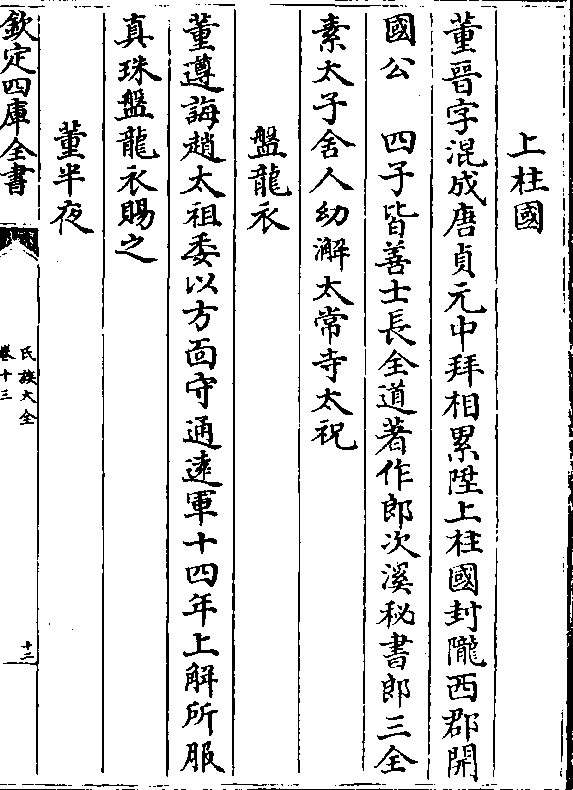 上柱國
董晉字混成唐貞元中拜相累陞上柱國封隴西郡開
國公　四子皆善士長全道著作郎次溪秘書郎三全
素太子舍人幼澥太常寺太祝
盤龍衣
董遵誨趙太祖委以方面守通遠軍十四年上解所服
真珠盤龍衣賜之
董半夜
欽定四庫全書
氏族大全
卷十三
十二